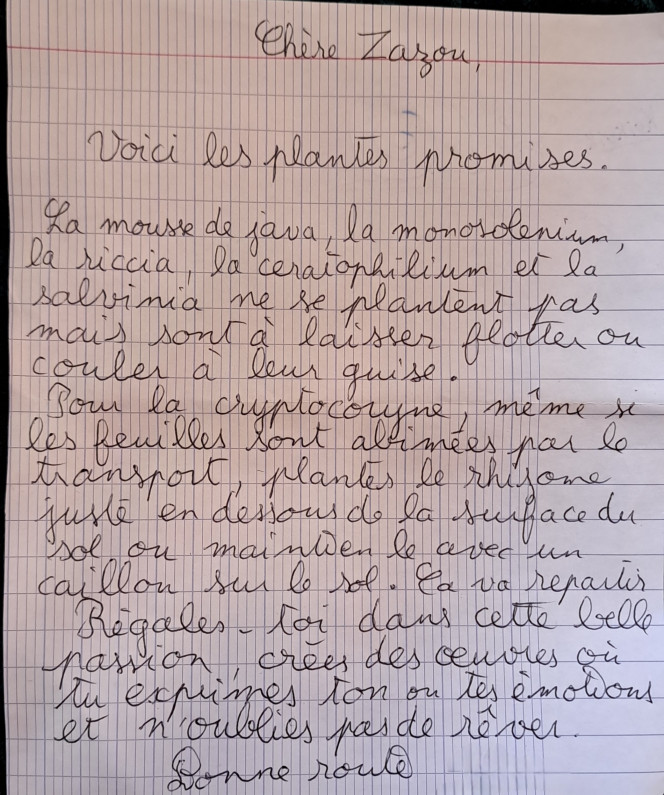 Chère Zazou,
Voici les plantes promises.
La mousse de java, la monosolenium,
la riccia, la ceratophilium et la
salvinia ne se plantent pas
mais sont à laisser flotter ou
couler à leur guise.
Pour la cryptocoryne, même si
les feuilles sont abimées par le
transport, plantes le rhizome
juste en dessous de la surface du
sol ou maintien le avec un
caillou sur le sol. Ça va repartir
Régales-toi dans cette belle
passion, crées des œuvres où
tu exprimes ton ou tes émotions
et n'oublies pas de rêver.
Bonne route